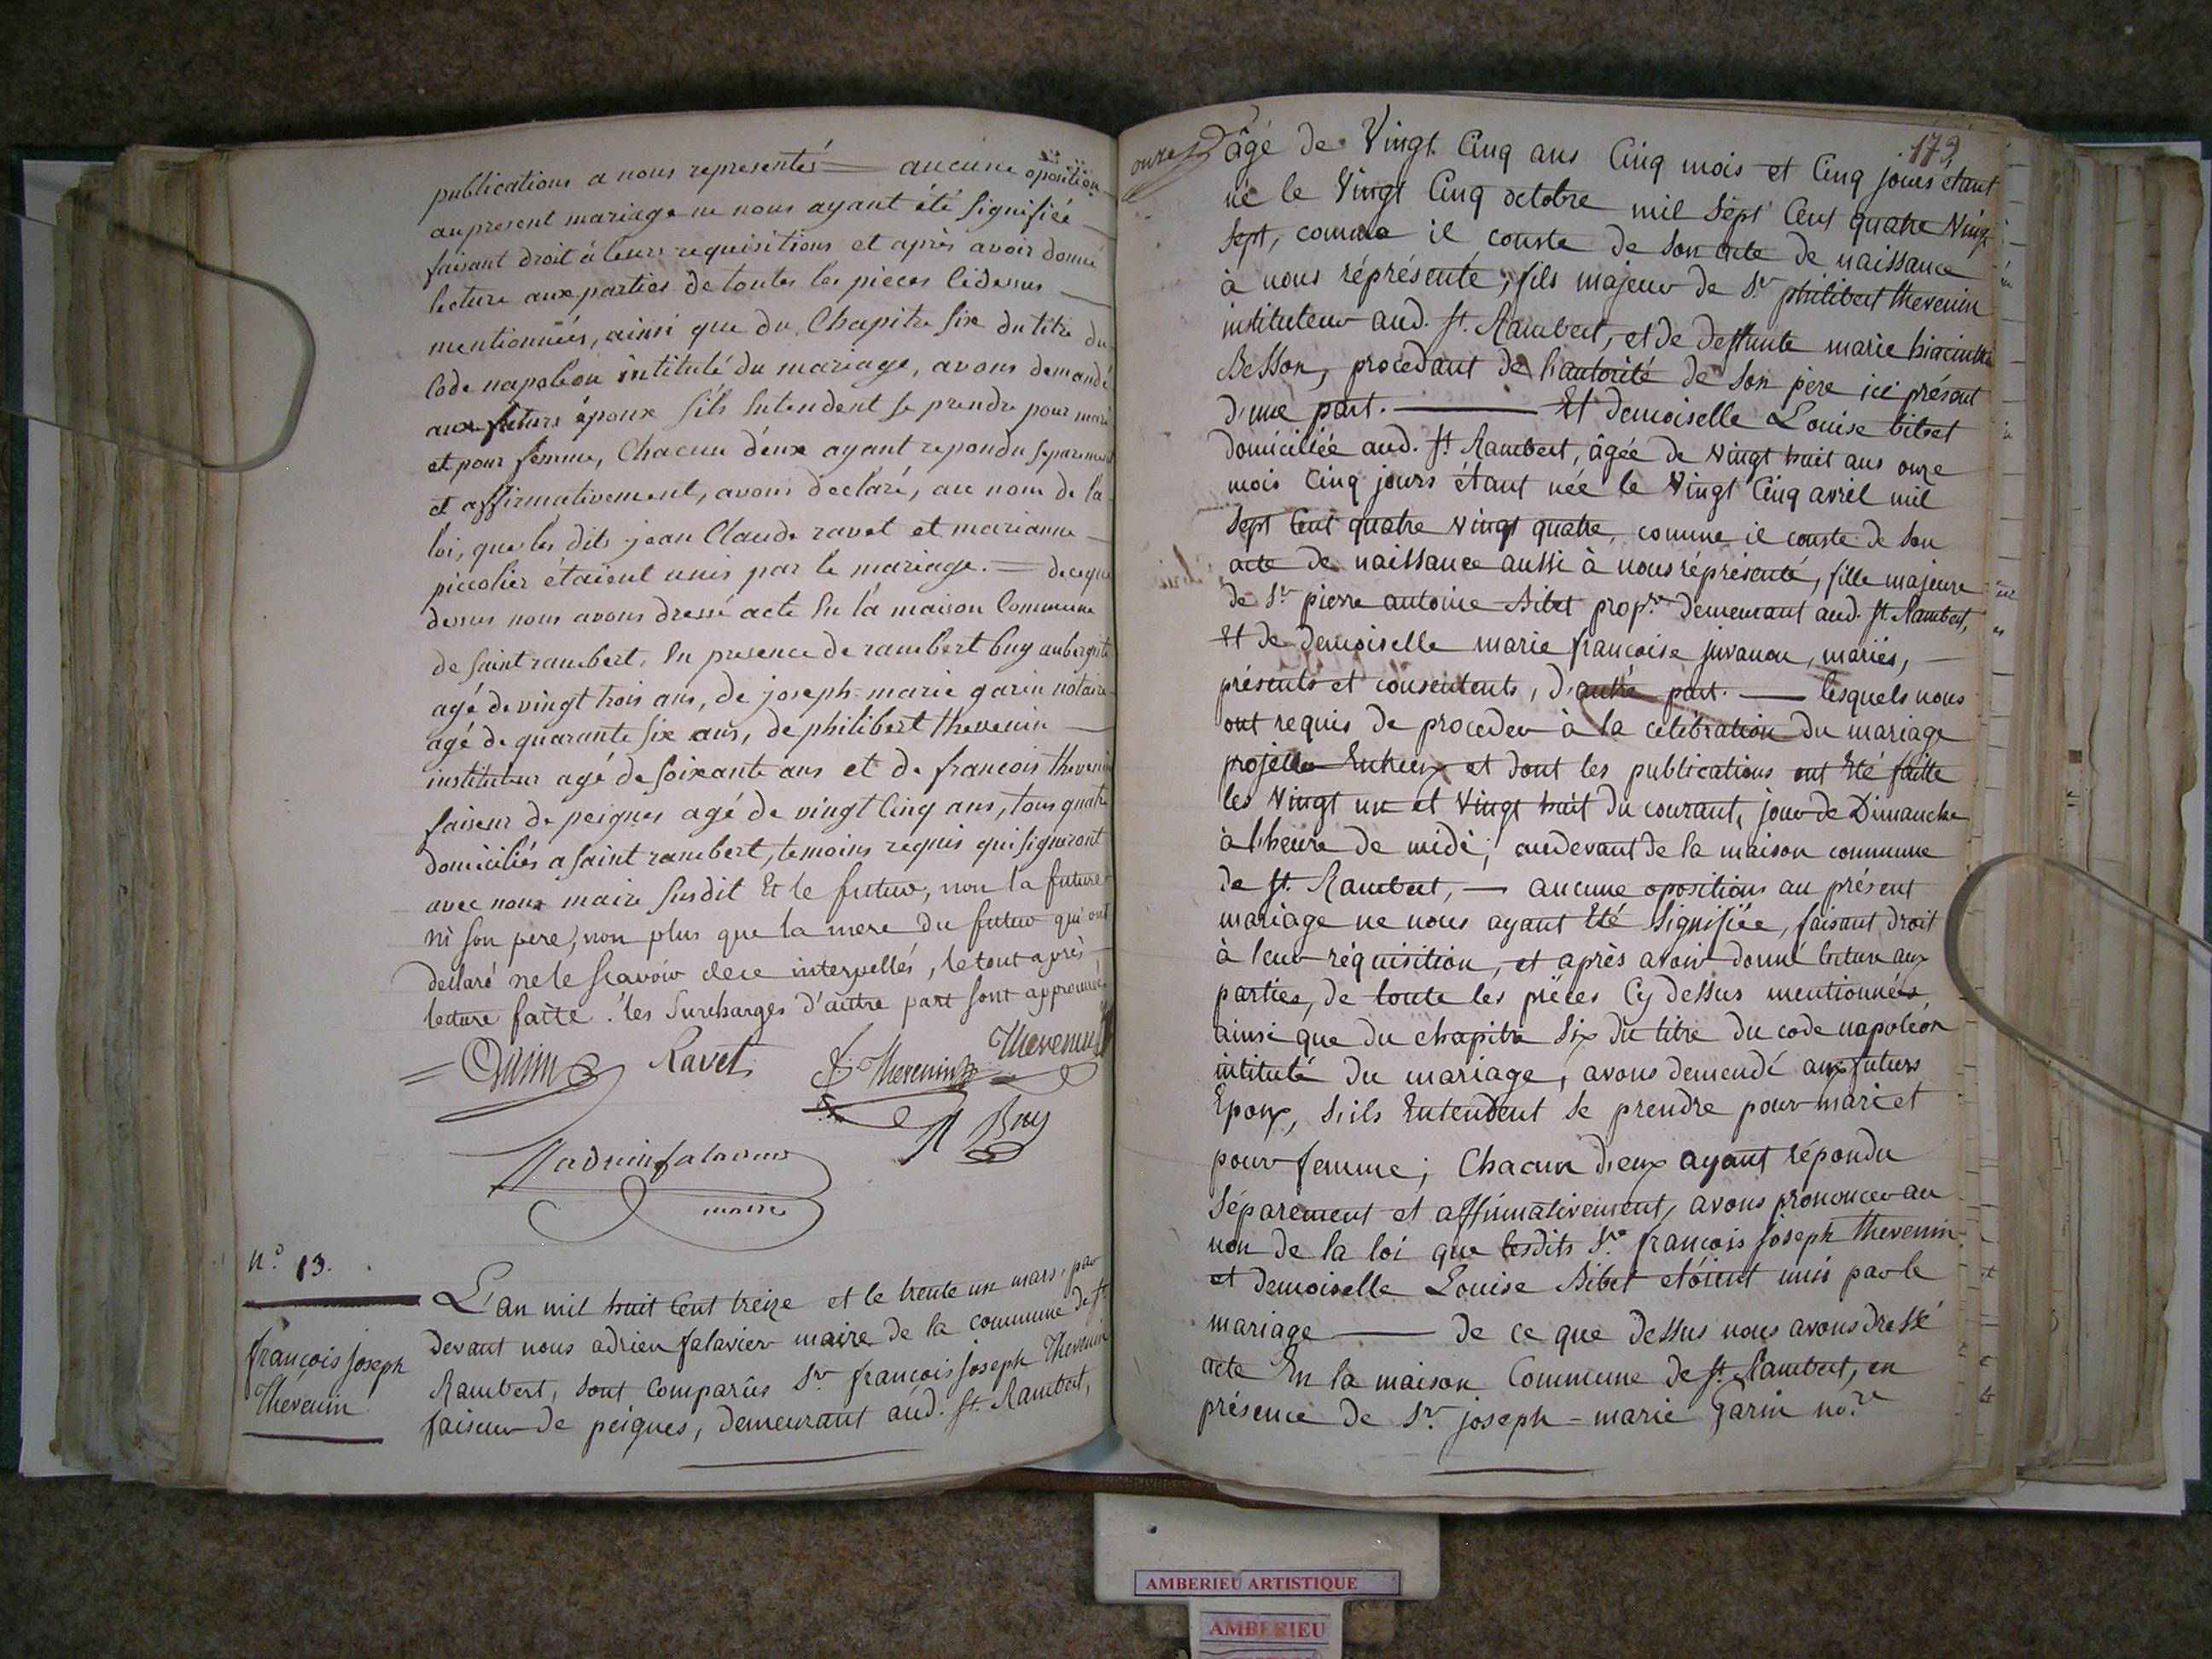 publications a nous representés — aucune oposition
au present mariage ne nous ayant été signifiée
faisant droit à leurs requisitions et après avoir donné
lecture aux parties de toutes les pieces cidessus
mentionnées, ainsi que du Chapitre six du titre du
Code napoleon intitulé du mariage, avons demandé
aux futurs époux s'ils entendent se prendre pour mari
et pour femme, Chacun d'eux ayant repondu separement
et affirmativement, avons declaré, au nom de la
loi, que les dits jean Claude ravet et marianne
piccolier étaient unis par le mariage. — de ce que
dessus nous avons dressé acte en la maison Commune
de saint rambert, en presence de rambert buy aubergiste
agé de vingt trois ans, de joseph-marie garin notaire
agé de quarante six ans, de philibert thevenin
instituteur agé de soixante ans et de francois thevenin
faiseur de peignes agé de vingt cinq ans, tous quatre
domiciliés a saint rambert, temoins requis qui signeront
avec nous maire susdit Et le futur, non la future
ni son pere, non plus que la mere du futur qui ont
déclaré ne le scavoir de ce interpellés, le tout après
lecture faite. les surcharges d'autre part sont approuvées
= Garin Ravet f. Thevenin Thevenin
R Buy
adrien falavier
maire
n.º 13.
françois joseph
Thévenin
L'an mil huit Cent treize et le trente un mars, par
devant nous adrien falavier maire de la commune de st
Rambert, sont Comparûs Sr. françois joseph Thevenin
faiseur de peignes, demeurant aud. st. Rambert,
179
onze
âgé de Vingt Cinq ans Cinq mois et Cinq jours étant
né le Vingt Cinq octobre mil sept Cent quatre Vingt
sept, comme il conste de son acte de naissance
à nous réprésenté, fils majeur de Sr. philibert thevenin
instituteur aud. st. Rambert, et de deffunte marie hiacinthe
Besson, procedant de l'autorité de son père ici présent
d'une part. — Et demoiselle Louise bibet
domiciliée aud. st. Rambert, âgée de Vingt huit ans onze
mois Cinq jours étant née le Vingt Cinq avril mil
sept Cent quatre vingt quatre, comme il conste de son
acte de naissance aussi à nous réprésenté, fille majeure
de Sr. pierre antoine Bibet propre. demeurant aud. st. Rambert,
Et de demoiselle marie françoise juvanon, mariés,
présents et consentents, d'autre part. — lesquels nous
ont requis de proceder à la célébration du mariage
projetté Entreux et dont les publications ont Eté faitte
les Vingt un et Vingt huit du courant, jour de Dimanche
à l'heure de midi; audevant de la maison commune
de st. Rambert, — aucune opositions au présent
mariage ne nous ayant Eté signifiée, faisant droit
à leur réquisition, et après avoir donné lecture aux
parties, de toute les pièces Cy dessus mentionnées
ainsi que du chapitre six du titre du code napoléon
intitulé du mariage, avons demendé aux futurs
Epoux, s'ils Entendent se prendre pour mari et
pour femme; Chacun d'eux ayant répondu
séparement et affirmativement, avons prononcer au
non de la loi que lesdits Sr. françois joseph thevenin
et demoiselle Louise Bibet etóient unis par le
mariage — de ce que dessus nous avons dressé
acte En la maison Commune de st. Rambert, en
présence de Sr. joseph-marie Garin no.re
AMBERIEU ARTISTIQUE
AMBERIEU